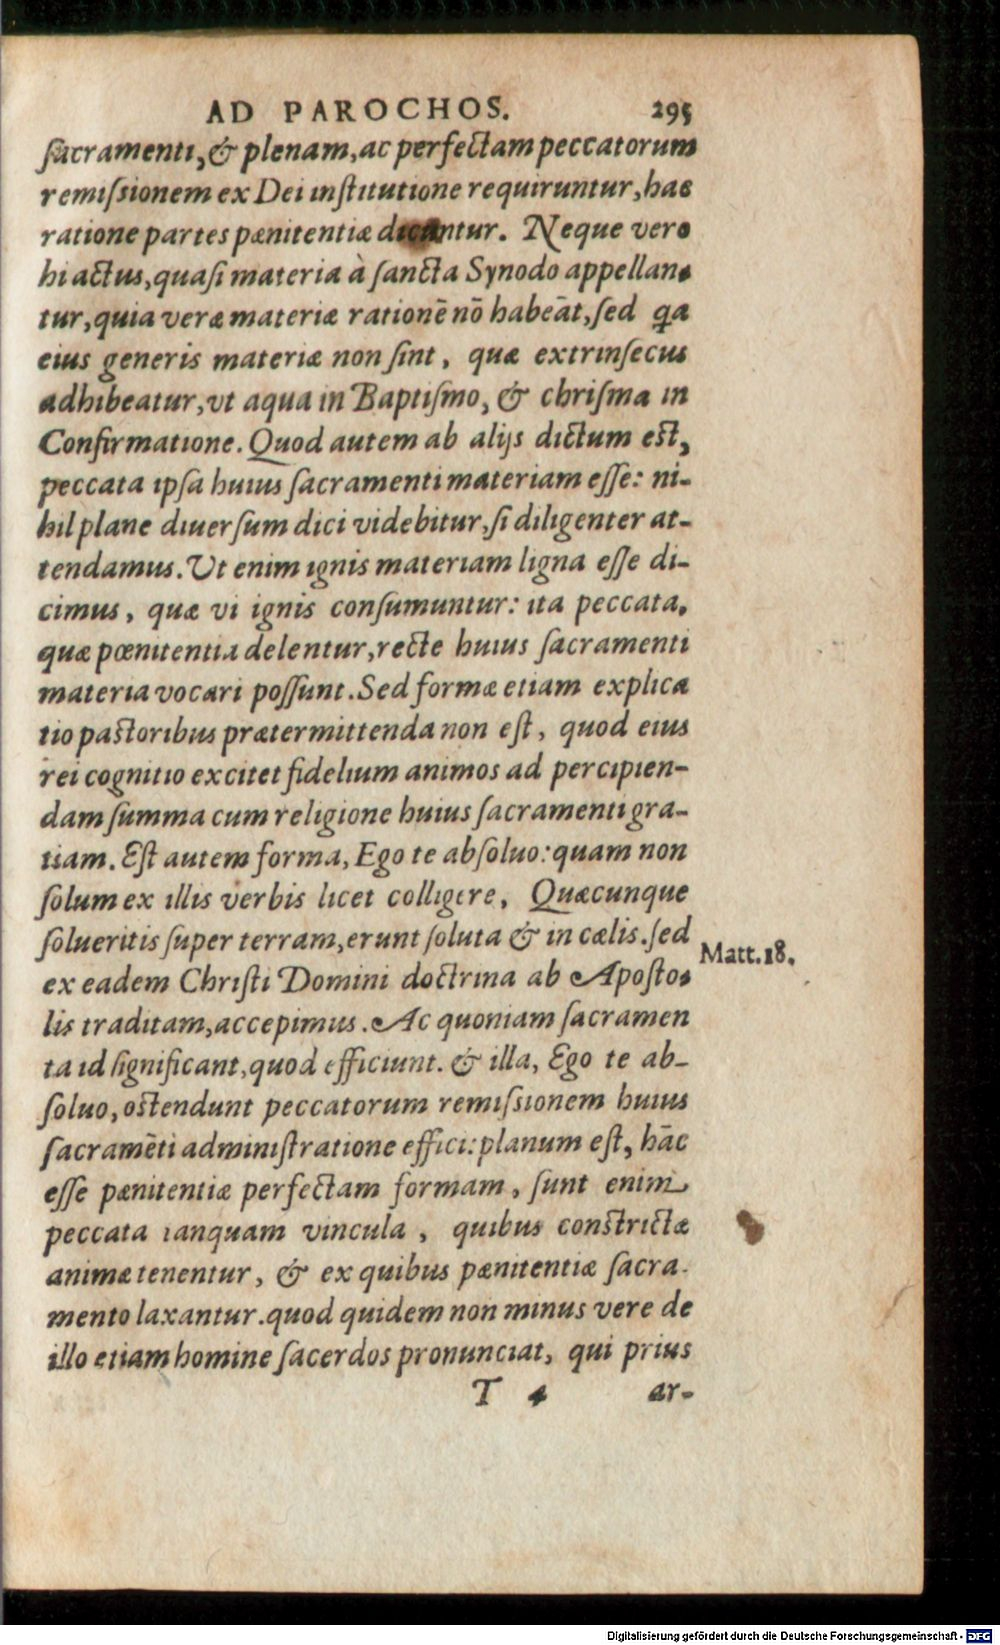 AD PAROCHOS. 295
sacramenti, & plenam, ac perfectam peccatorum
remissionem ex Dei institutione requiruntur, hac
ratione partes pænitentiæ dicuntur. Neque vero
hi actus, quasi materia à sancta Synodo appellan-
tur, quia veræ materiæ rationē nō habeāt, sed qa
eius generis materiæ non sint, quæ extrinsecus
adhibeatur, vt aqua in Baptismo, & chrisma in
Confirmatione. Quod autem ab alijs dictum est,
peccata ipsa huius sacramenti materiam esse: ni-
hil plane diuersum dici videbitur, si diligenter at-
tendamus. Ut enim ignis materiam ligna esse di-
cimus, quæ vi ignis consumuntur: ita peccata,
quæ pœnitentia delentur, recte huius sacramenti
materia vocari possunt. Sed formæ etiam explica
tio pastoribus prætermittenda non est, quod eius
rei cognitio excitet fidelium animos ad percipien-
dam summa cum religione huius sacramenti gra-
tiam. Est autem forma, Ego te absoluo: quam non
solum ex illis verbis licet colligere, Quæcunque
solueritis super terram, erunt soluta & in cælis. sed
Matt. 18.
ex eadem Christi Domini doctrina ab Aposto-
lis traditam, accepimus. Ac quoniam sacramen
ta id significant, quod efficiunt. & illa, Ego te ab-
soluo, ostendunt peccatorum remissionem huius
sacramēti administratione effici: planum est, hāc
esse pænitentiæ perfectam formam, sunt enim
peccata tanquam vincula, quibus constrictæ
animæ tenentur, & ex quibus pænitentiæ sacra-
mento laxantur. quod quidem non minus vere de
illo etiam homine sacerdos pronunciat, qui prius
T 4 ar-
Digitalisierung gefördert durch die Deutsche Forschungsgemeinschaft - DFG